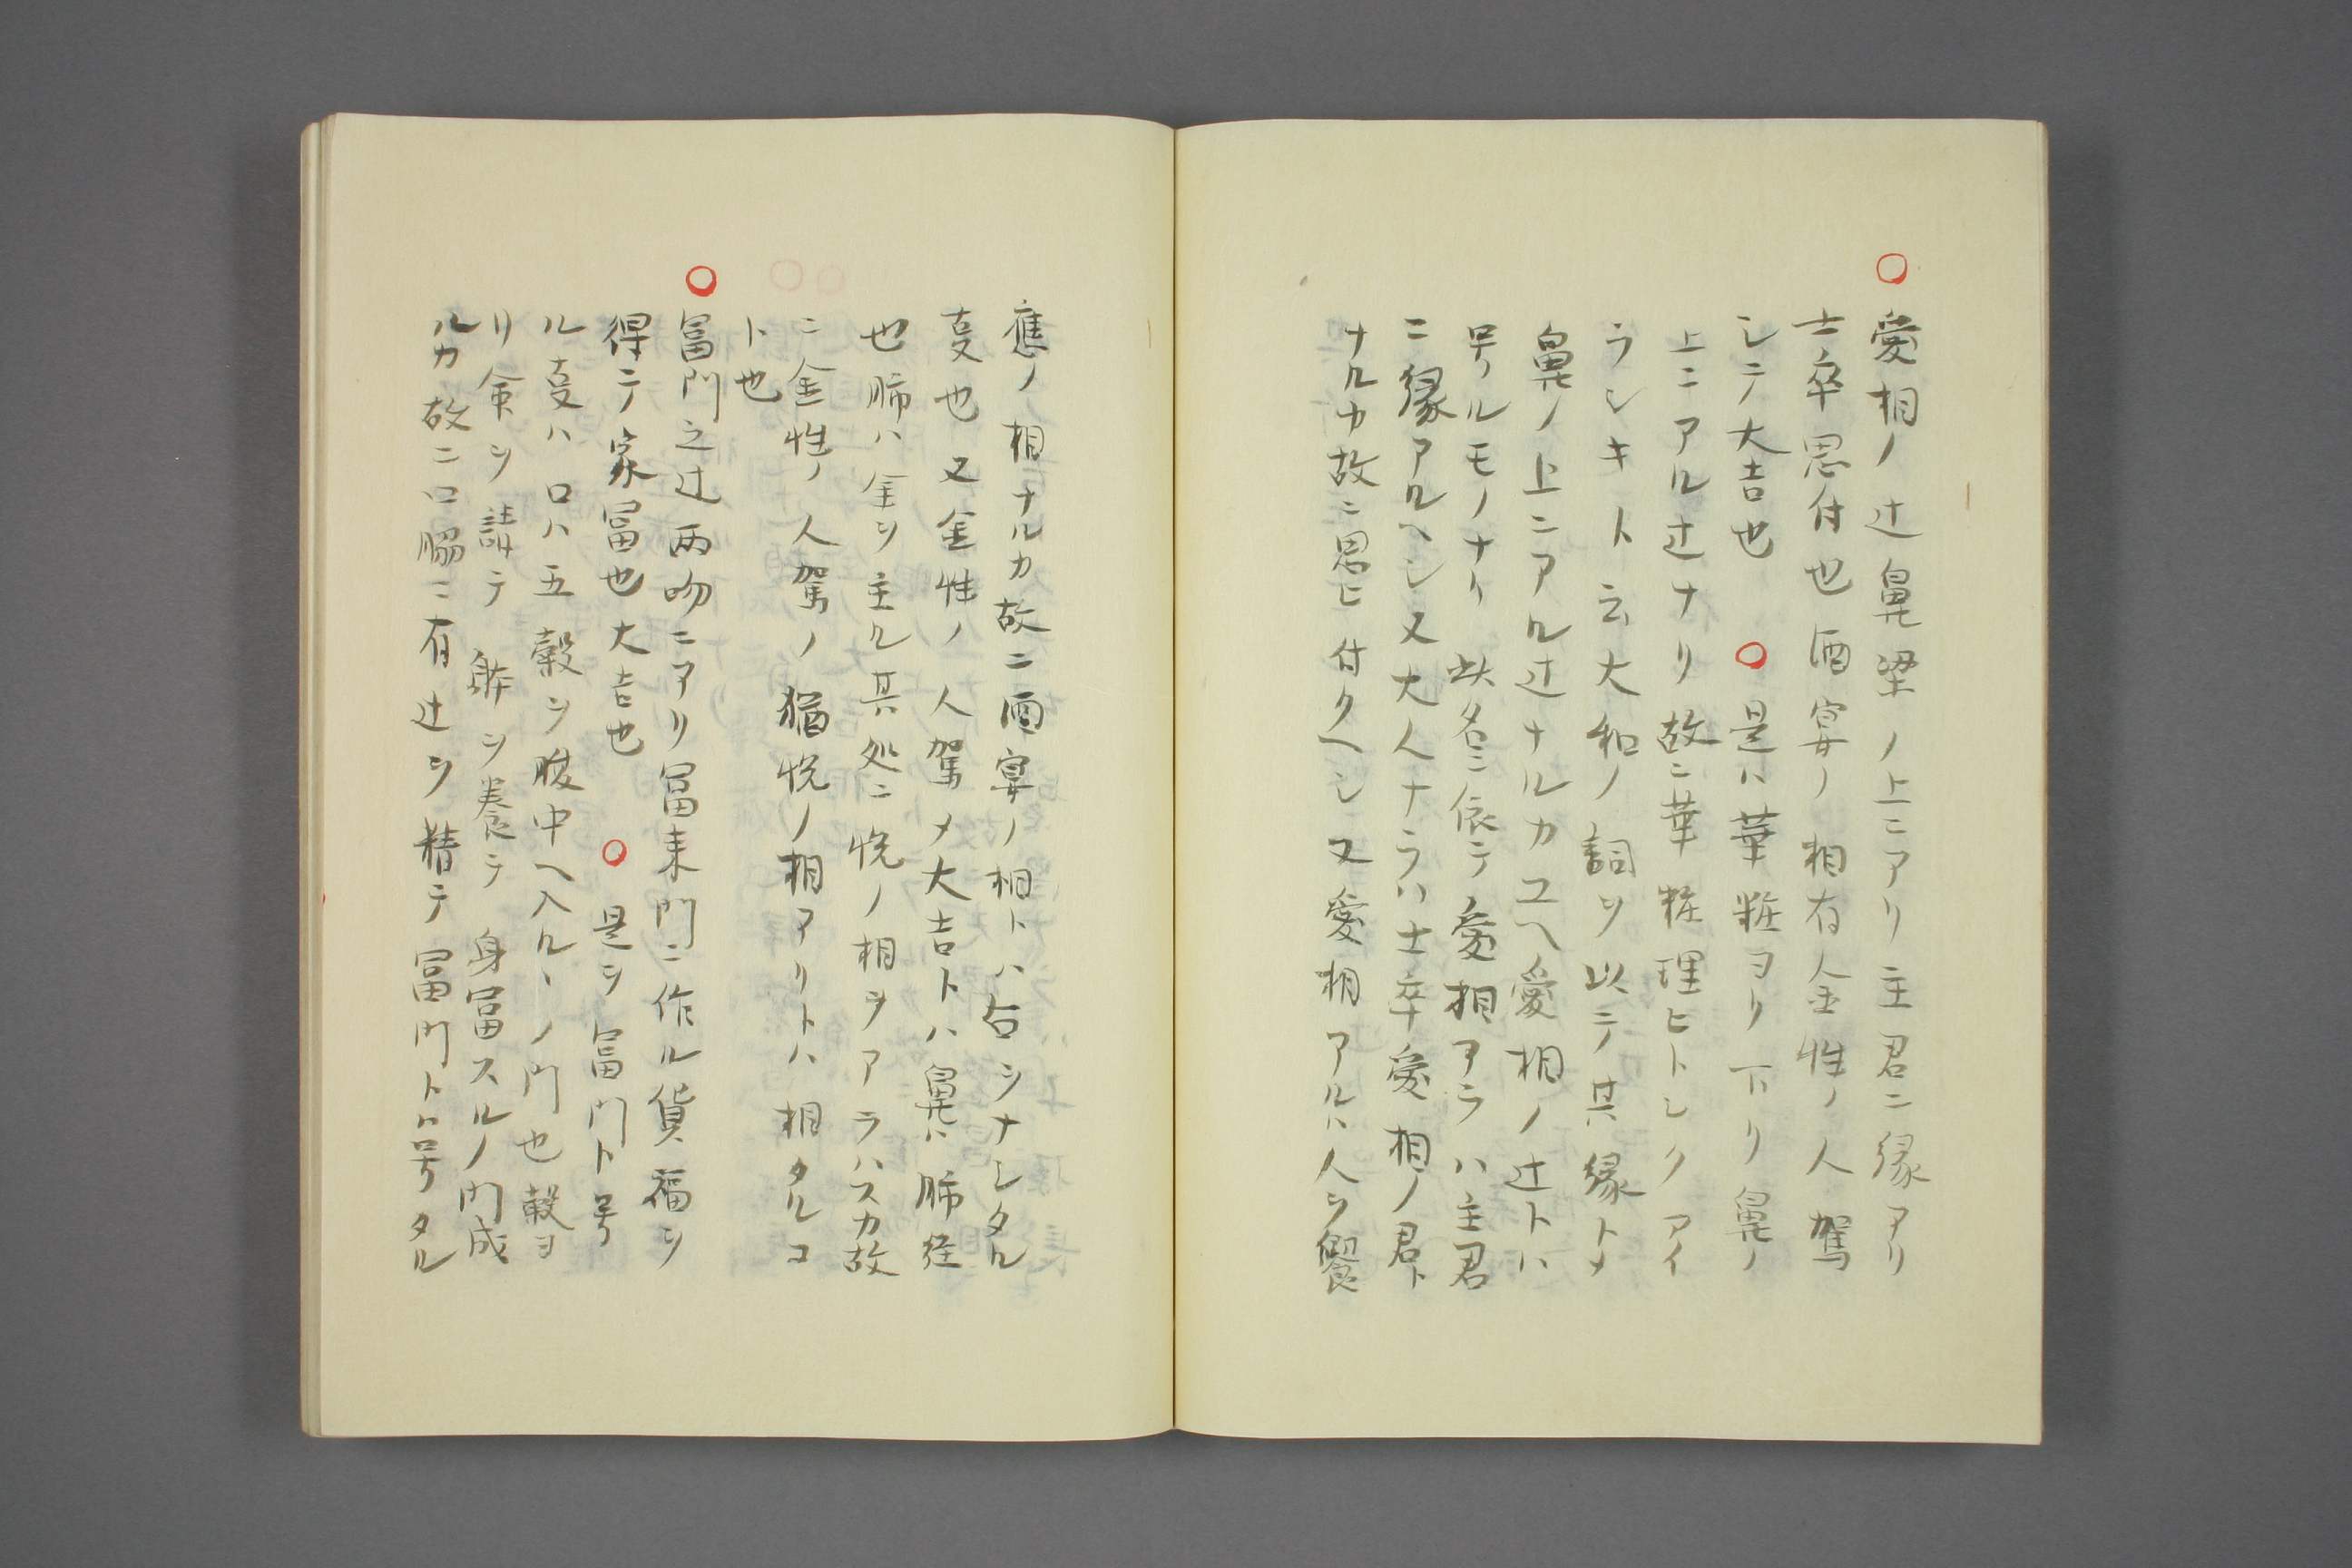 ○愛相ノ辻鼻梁ノ上ニアリ主君ニ縁アリ
士卒思付也酒宴ノ相有金性ノ人駕
シテ大吉也 ○是ハ華粧ヨリ下リ鼻ノ
上ニアル辻ナリ故ニ華粧理ヒトシクアイ
ラシキト云大和ノ詞ヲ以テ其縁トメ
鼻ノ上ニアル辻ナルカユヘ愛相ノ辻トハ
号ルモノナリ 此名ニ依テ愛相アラハ主君
ニ縁アルヘシ又大人ナラハ士卒愛相ノ君ト
ナルカ故ニ思ヒ付クヘシ又愛相アルハ人ヲ饗
應ノ相ナルカ故ニ酒宴ノ相トハ占シナシタル
叓也又金性ノ人駕メ大吉トハ鼻ハ肺経
也肺ハ金ヲ主ル其処ニ悦ノ相ヲアラハスカ故
ニ金性ノ人駕ノ猶悦ノ相アリトハ相タルコ
ト也
○冨門之辻両吻ニアリ冨来門ニ作ル貨福ヲ
得テ家冨也大吉也 ○是ヲ冨門ト号
ル叓ハ口ハ五穀ヲ腹中ヘ入ルヽノ門也穀ヨ
リ食ヲ請テ躰ヲ養テ身冨スルノ門成
ルカ故ニ口脇ニ有辻ヲ精テ冨門トハ号タル